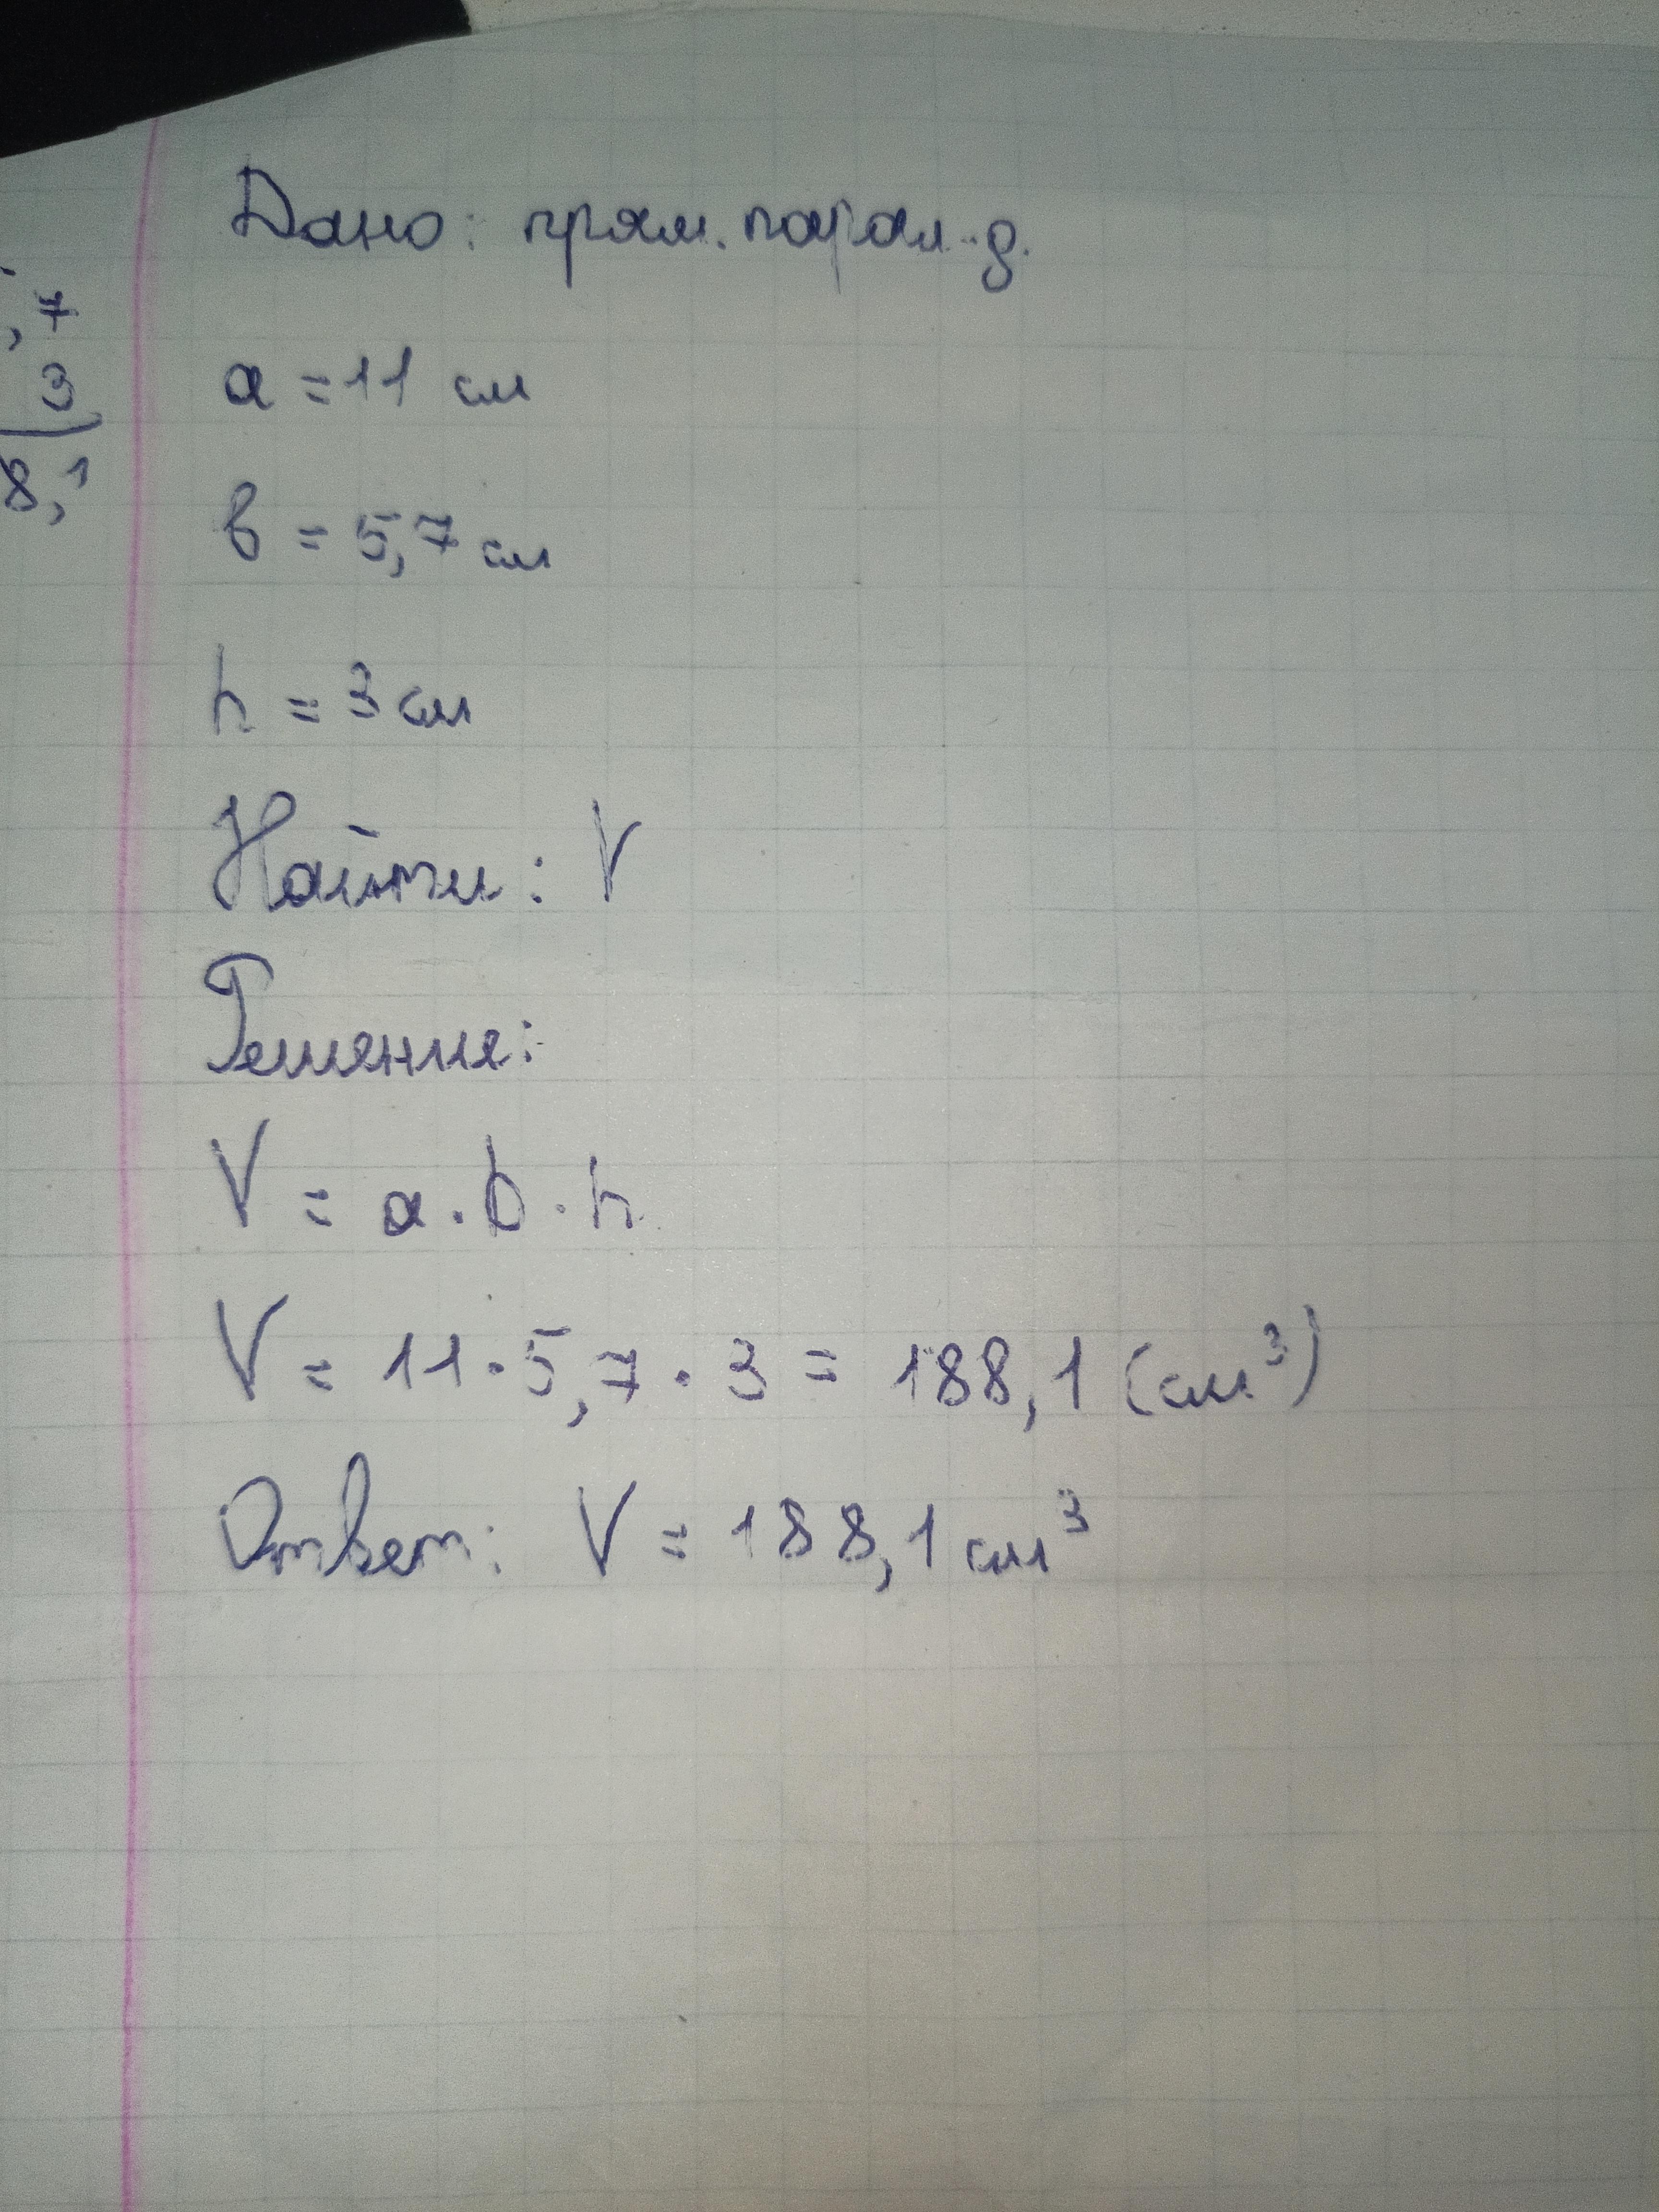 Дано: прям. парал-д.
,7
3
8,1
a = 11 см
в = 5,7 см
h = 3 см
Найти: V
Решение:
V = a · b · h
V = 11 · 5,7 · 3 = 188,1 (см³)
Ответ: V = 188,1 см³